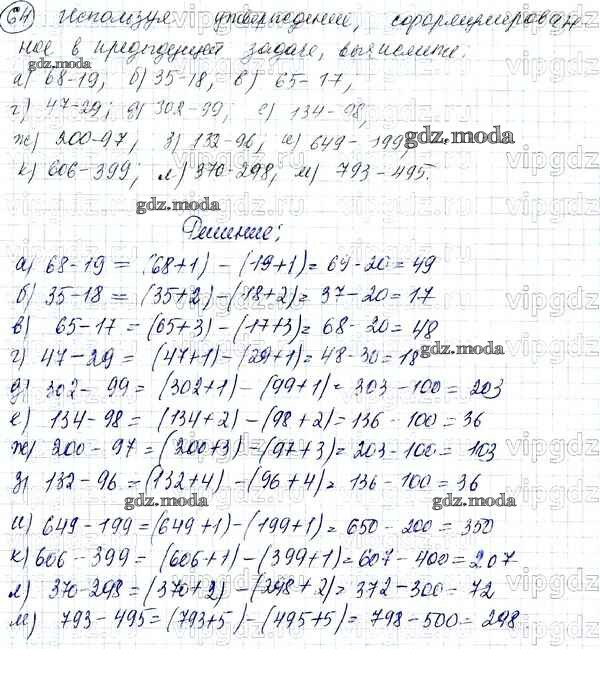 64 Используя утверждение, сформулирован-
ное в предыдущей задаче, вычислите:
а) 68-19, б) 35-18, в) 65-17,
г) 47-29; д) 302-99; е) 134-98,
ж) 200-97, з) 132-96, и) 649-199,
к) 606-399, л) 370-298, м) 793-495.
Решение:
а) 68-19 = (68+1) - (19+1) = 69-20 = 49
б) 35-18 = (35+2) - (18+2) = 37-20 = 17
в) 65-17 = (65+3) - (17+3) = 68-20 = 48
г) 47-29 = (47+1) - (29+1) = 48-30 = 18
д) 302-99 = (302+1) - (99+1) = 303-100 = 203
е) 134-98 = (134+2) - (98+2) = 136-100 = 36
ж) 200-97 = (200+3) - (97+3) = 203-100 = 103
з) 132-96 = (132+4) - (96+4) = 136-100 = 36
и) 649-199 = (649+1) - (199+1) = 650-200 = 350
к) 606-399 = (606+1) - (399+1) = 607-400 = 207
л) 370-298 = (370+2) - (298+2) = 372-300 = 72
м) 793-495 = (793+5) - (495+5) = 798-500 = 298.
gdz.moda
gdz.moda
gdz.moda
gdz.moda
gdz.moda
gdz.moda
gdz.moda
gdz.moda
gdz.moda